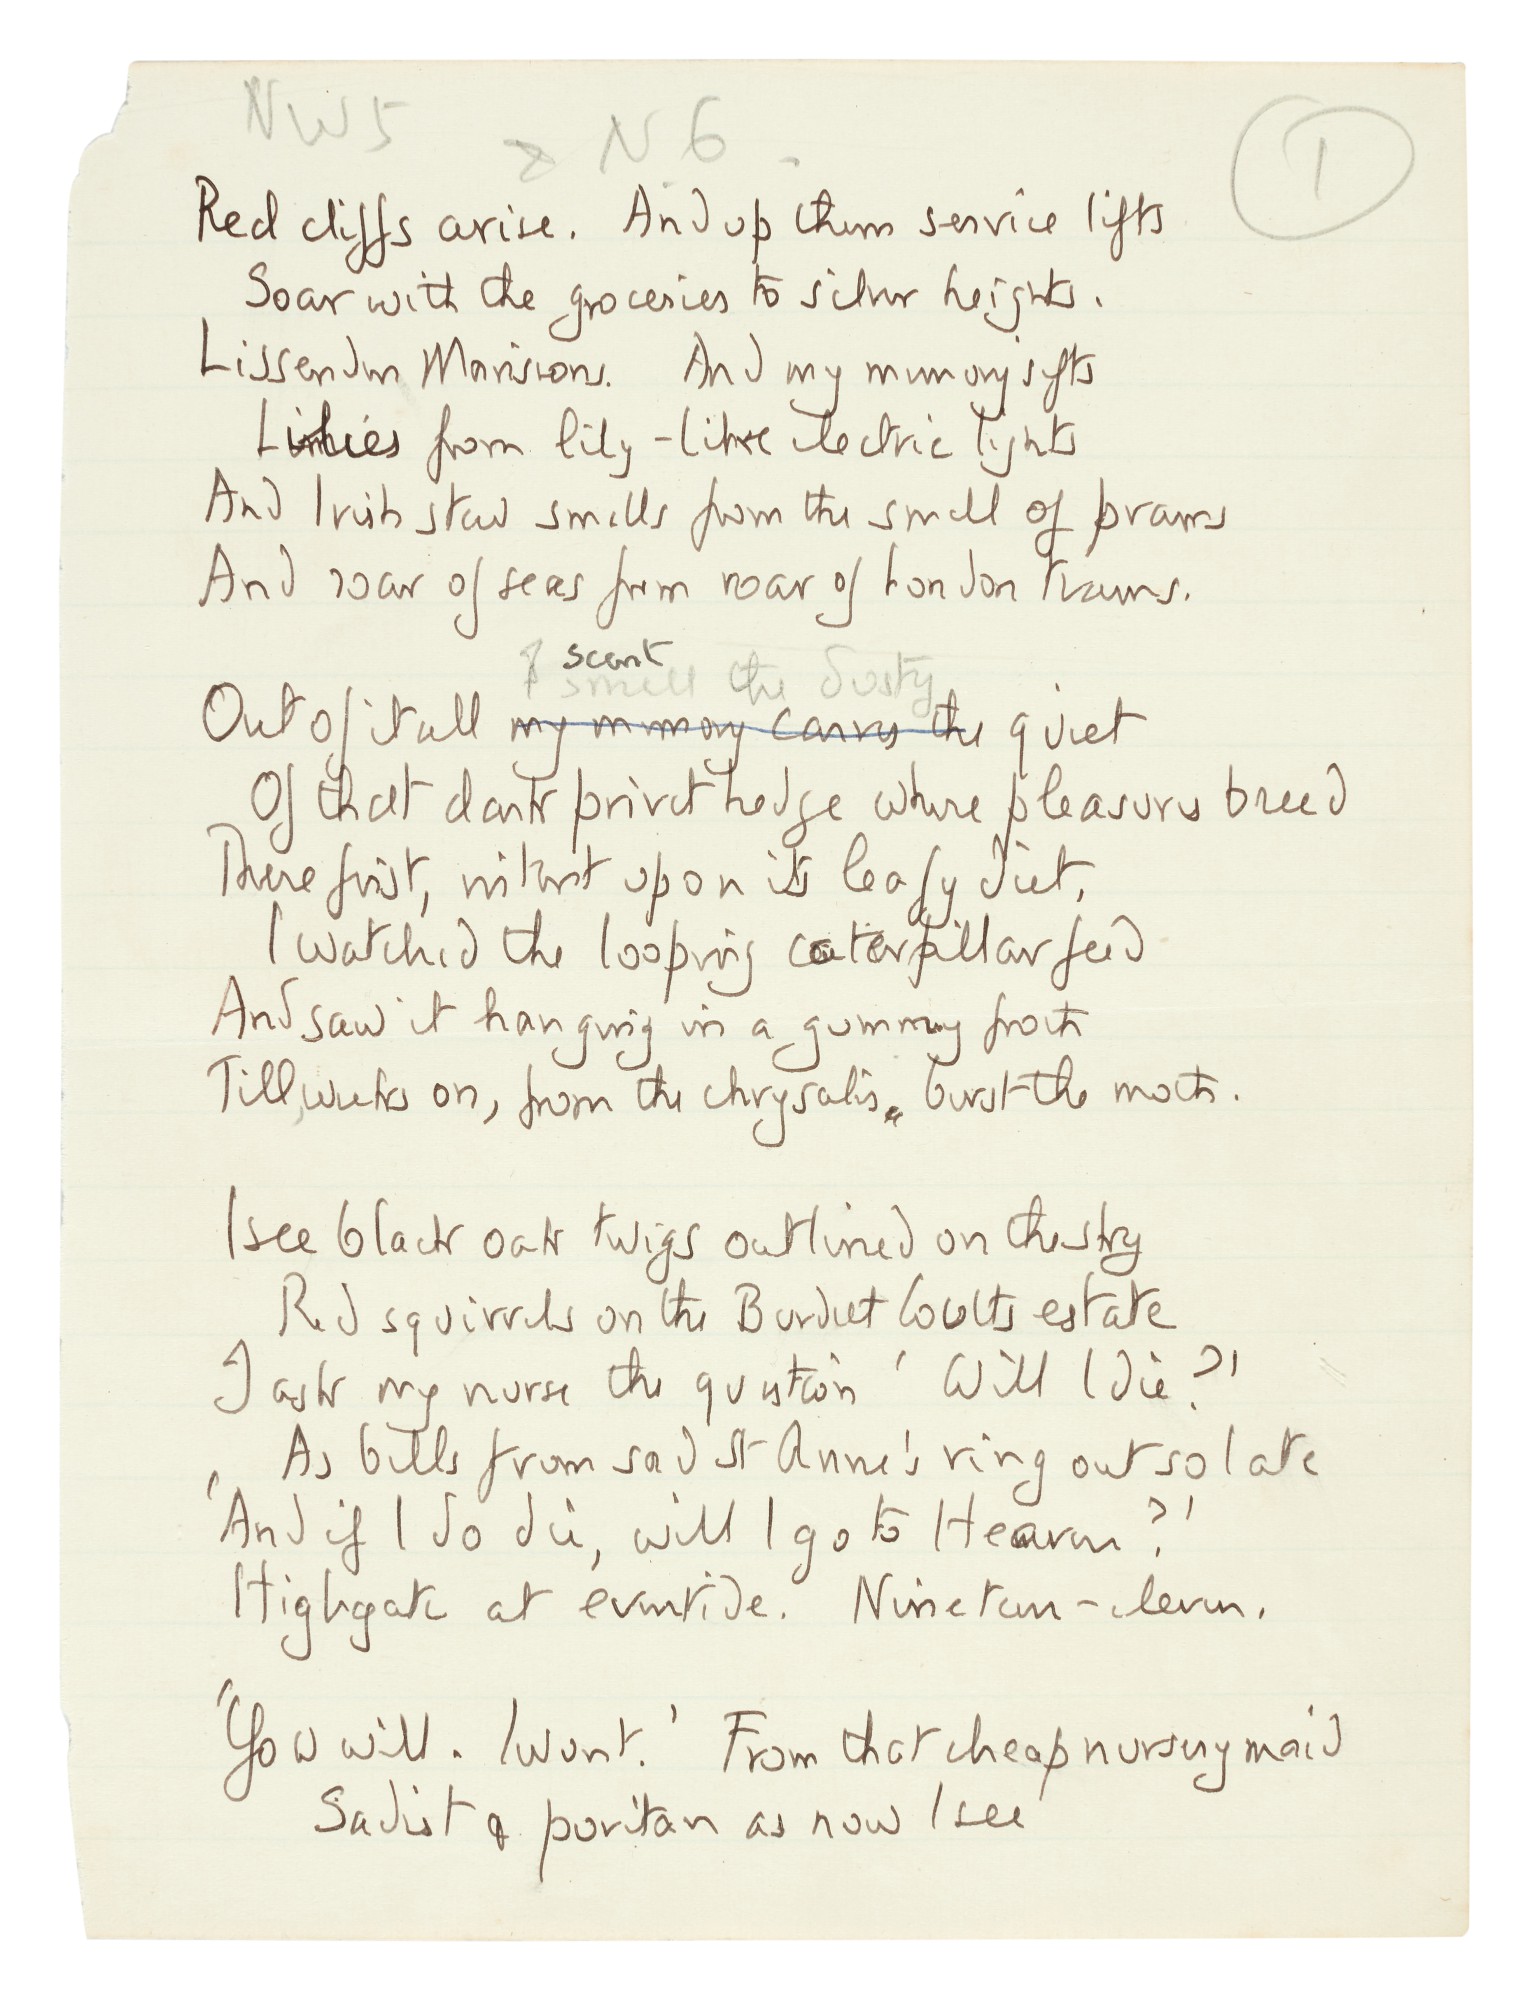 NW5 & N6.
1
Red cliffs arise. And up them service lifts
Soar with the groceries to silver heights.
Lissenden Mansions. And my memory sifts
Lilies from lily-like electric lights
And Irish stew smells from the smell of prams
And roar of seas from roar of London trams.
I scent
smell the dusty
Out of it all my memory carves the quiet
Of that dark privet hedge where pleasures breed
There first, intent upon its leafy diet,
I watched the looping caterpillar feed
And saw it hanging in a gummy froth
Till, weeks on, from the chrysalis burst the moth.
I see black oak twigs outlined on the sky
Red squirrels on the Burdett Coutts estate
I ask my nurse the question 'Will I die?'
As bells from sad St Anne's ring out so late
'And if I do die, will I go to Heaven?'
Highgate at eventide. Nineteen-eleven.
'You will. I wont.' From that cheap nursery maid
Sadist & puritan as now I see